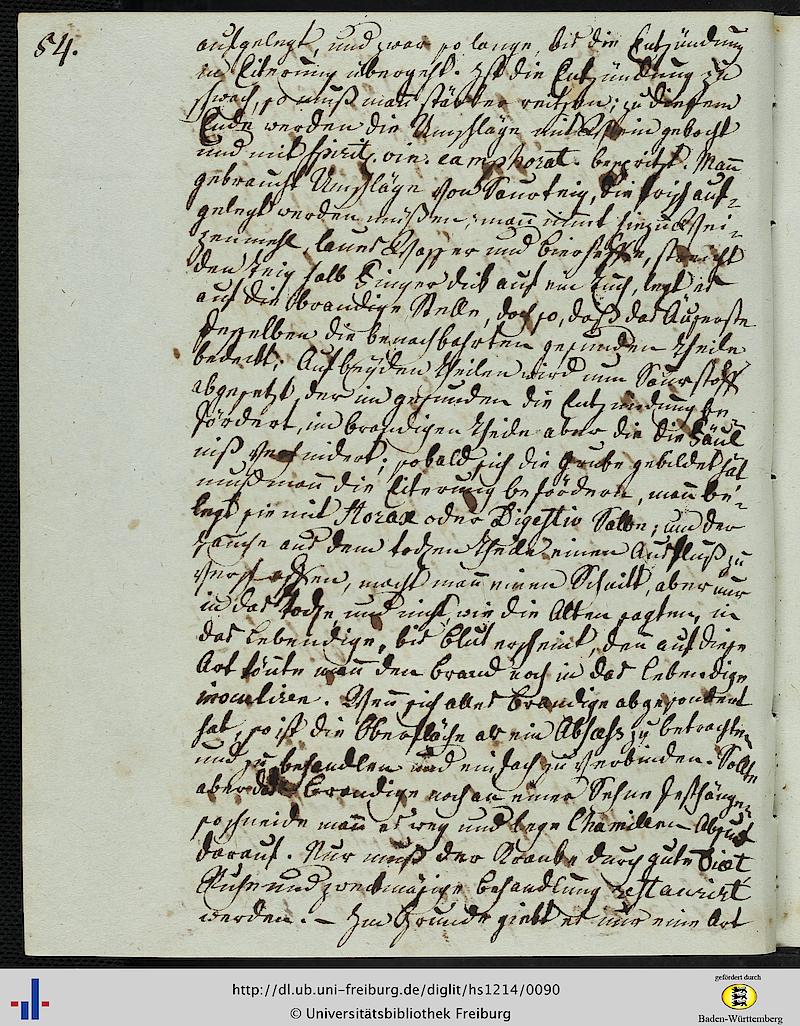 54.
aufgelegt, und zwar so lange, bis die Entzündung
in Eiterung übergeht. Ist die Entzündung zu
schwach, so muß man stärker reitzen; zu diesem
Ende werden die Umschläge mit Wein gekocht
und mit Spirit. vin. camphorat. bespritzt. Man̄
gebraucht Umschläge von Saurteig, die frisch auf-
gelegt werden müßen; man̄ nim̄t hiezu Wei-
zenmehl, laues Wasser und Bierhefe, streicht
den Teig halb Finger dick auf ein Tuch, legt es
auf die brandige Stelle, doch so, daß das Äuserste
desselben die benachbahrten gesunden Theile
bedeckt. Auf beyden Theilen wird nun Saurstoff
abgesetzt, der im gesunden die Entzündung be-
fördert, im brandigen Theile aber die die Fäul-
niß verhindert; sobald sich die Grube gebildet hat
muß man̄ die Eiterung befördern, man̄ be-
legt sie mit Storax oder Digestiv Salbe; um der
Jauche aus dem todten Theile einen Ausfluß zu
verschaffen, macht man̄ einen Schnitt, aber nur
in das Todte, und nicht wie die Alten sagten, in
das Lebendige, bis Blut erscheint, den̄ auf diese
Art kön̄te man̄ den Brand noch in das Lebendige
inoculiren. Wen̄ sich alles Brandige abgesondert
hat, so ist die Oberfläche als ein Absceß zu betrachten
und zu behandlen und einfach zu verbinden. Sollte
aber das Brandige noch an einer Sehne festhängen,
so schneide man̄ es weg und lege Chamillen
darauf. Nur muß der Kranke durch gute Diæt
Ruhe und zweckmäsige Behandlung restaurirt
werden. – Im Grunde giebt es nur eine Art
http://dl.ub.uni-freiburg.de/diglit/hs1214/0090
© Universitätsbibliothek Freiburg
gefördert durch
Baden-Württemberg